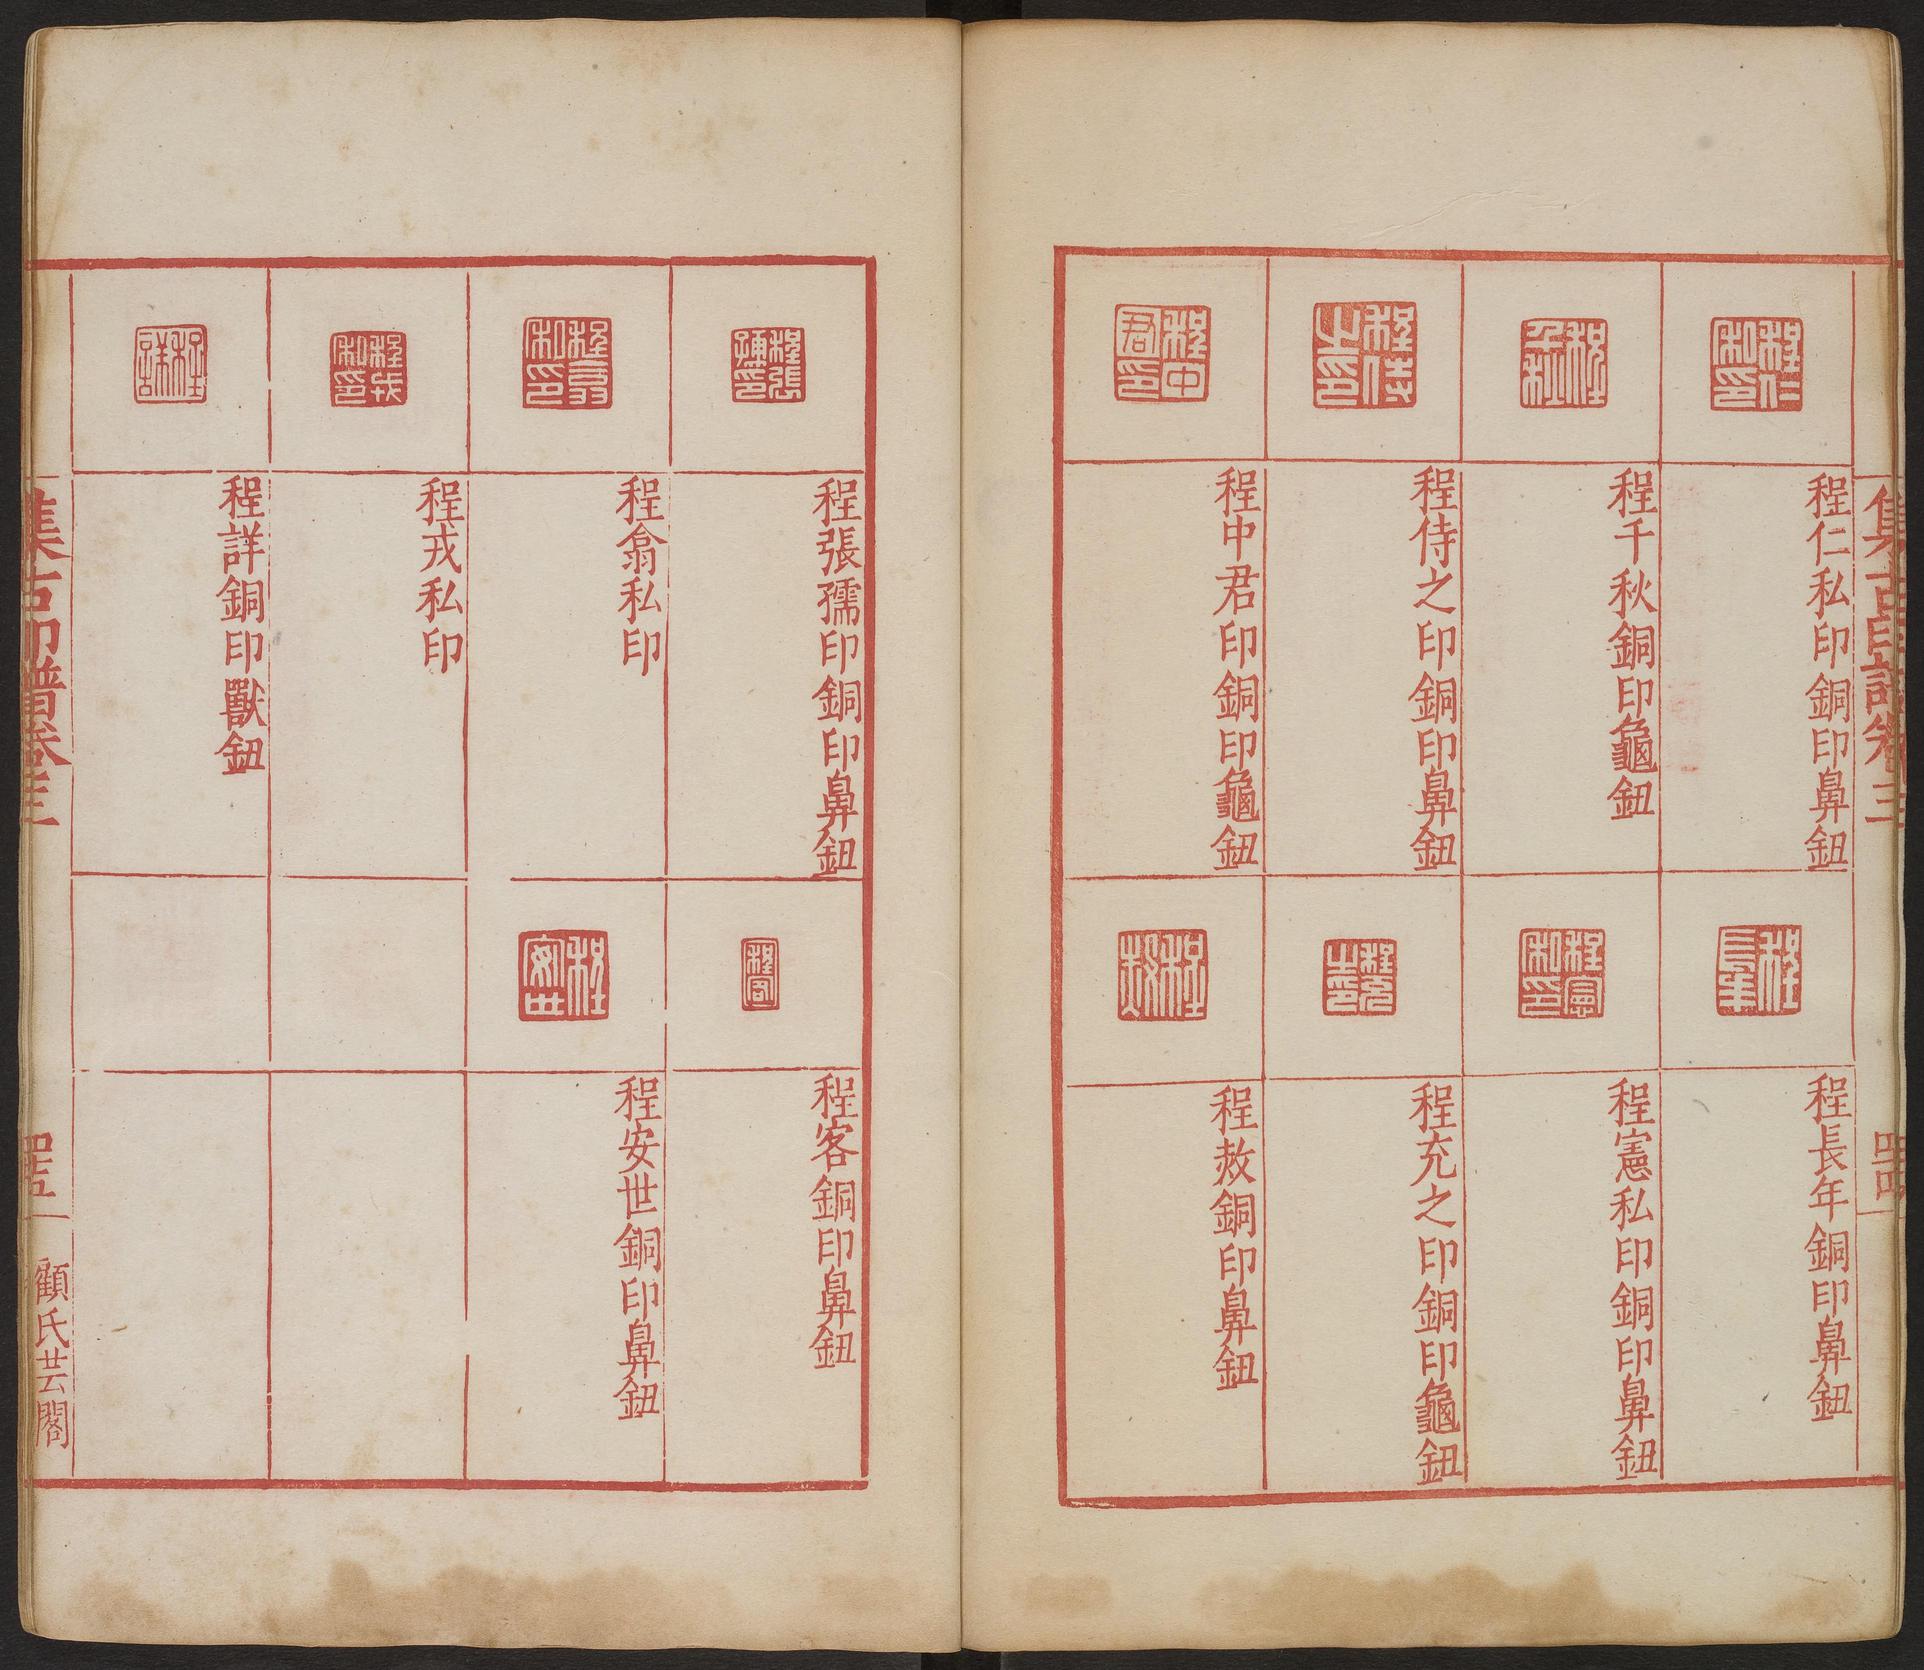 集古印譜卷三
程仁私印銅印鼻鈕
程千秋銅印龜鈕
程侍之印銅印鼻鈕
程中君印銅印龜鈕
程長年銅印鼻鈕
程憲私印銅印鼻鈕
程充之印銅印龜鈕
程敖銅印鼻鈕
程張孺印銅印鼻鈕
程翕私印
程戎私印
程詳銅印獸鈕
程客銅印鼻鈕
程安世銅印鼻鈕
集古印譜卷三
顧氏芸閣